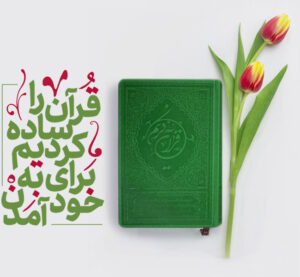 قرآن را
ساده
کردیم
برای به
خود آمدن
قرآن کریم